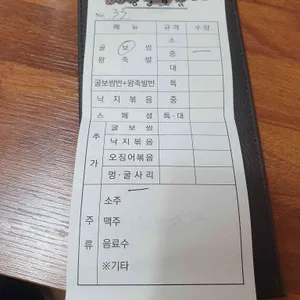 No. 35
메뉴 규격 수량
굴보쌈 소
왕족발 중
대
굴보쌈반+왕족발반 특
낙지볶음 중
스페셜 특·대
추가 굴보쌈
낙지볶음
오징어볶음
멍·굴사리
주류 소주
맥주
음료수
※기타